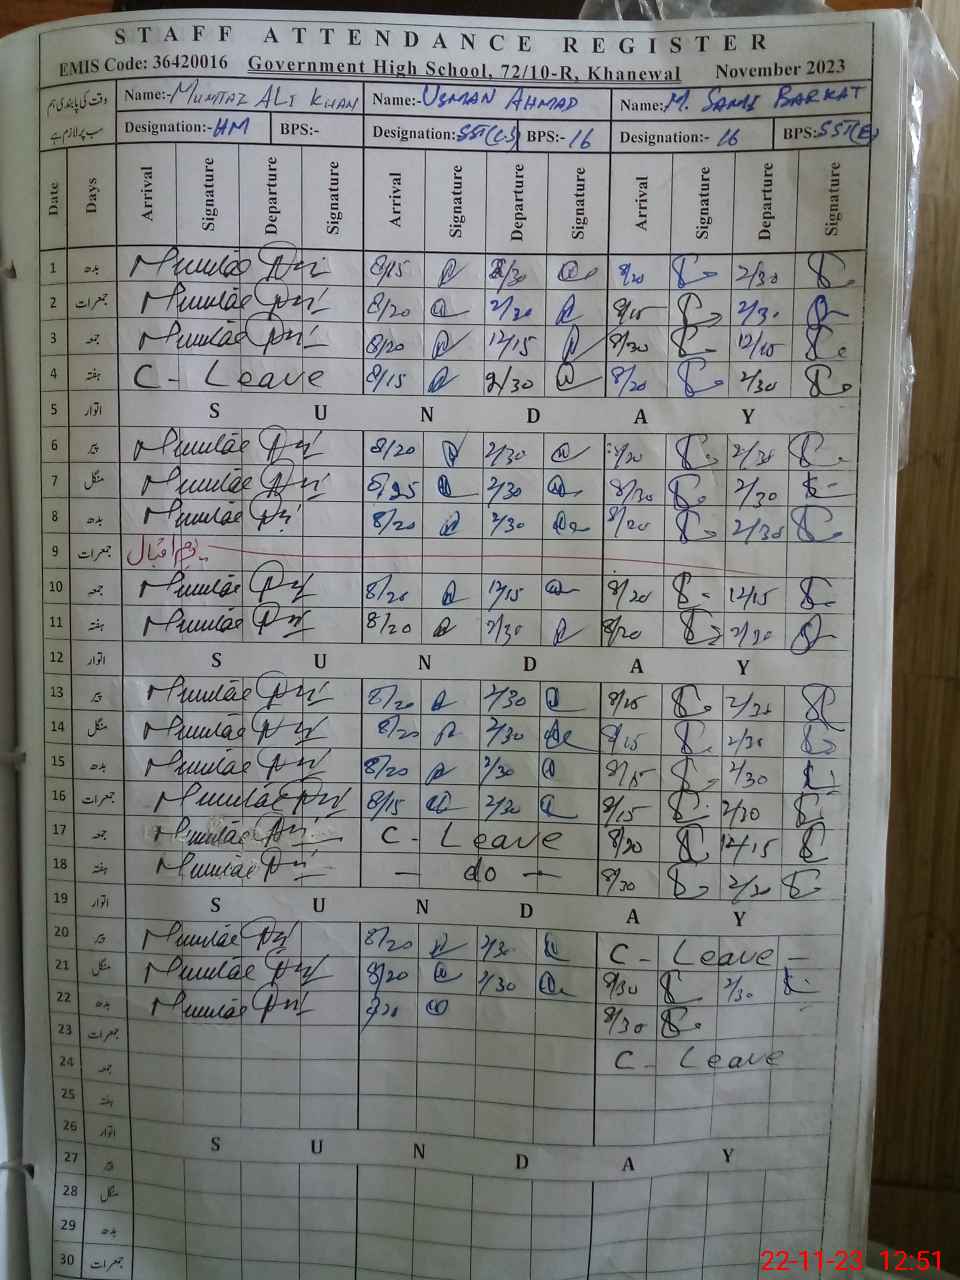 STAFF ATTENDANCE REGISTER
EMIS Code: 36420016 Government High School, 72/10-R, Khanewal November 2023
وقت کی پابندی ہم Name:- MUMTAZ ALI KHAN Name:- USMAN AHMAD Name:- M. SAMI BARKAT
سب پر لازم ہے Designation:- HM BPS:- Designation: SST(C.S) BPS:- 16 Designation:- 16 BPS: SST(E)
Date Days Arrival Signature Departure Signature Arrival Signature Departure Signature Arrival Signature Departure Signature
1 بدھ 8/15 2/30 8/20 2/30
2 جمعرات 8/20 2/30 8/15 2/30
3 جمعہ 8/20 12/15 8/30 12/15
4 ہفتہ C - Leave 8/15 2/30 8/20 2/30
5 اتوار S U N D A Y
6 پیر 8/20 2/30 8/20 2/30
7 منگل 8/25 2/30 8/30 2/30
8 بدھ 8/20 2/30 8/20 2/30
9 جمعرات یوم اقبال
10 جمعہ 8/20 12/15 8/20 12/15
11 ہفتہ 8/20 2/30 8/20 2/30
12 اتوار S U N D A Y
13 پیر 8/20 2/30 8/15 2/30
14 منگل 8/20 2/30 8/15 2/30
15 بدھ 8/20 2/30 8/15 2/30
16 جمعرات 8/15 2/30 8/15 2/30
17 جمعہ C - Leave 8/20 12/15
18 ہفتہ — do — 8/30 2/30
19 اتوار S U N D A Y
20 پیر 8/20 2/30 C - Leave -
21 منگل 8/20 2/30 8/30 2/30
22 بدھ 8/20 8/30
23 جمعرات
24 جمعہ C - Leave
25 ہفتہ
26 اتوار S U N D A Y
27 پیر
28 منگل
29 بدھ
30 جمعرات
22-11-23 12:51